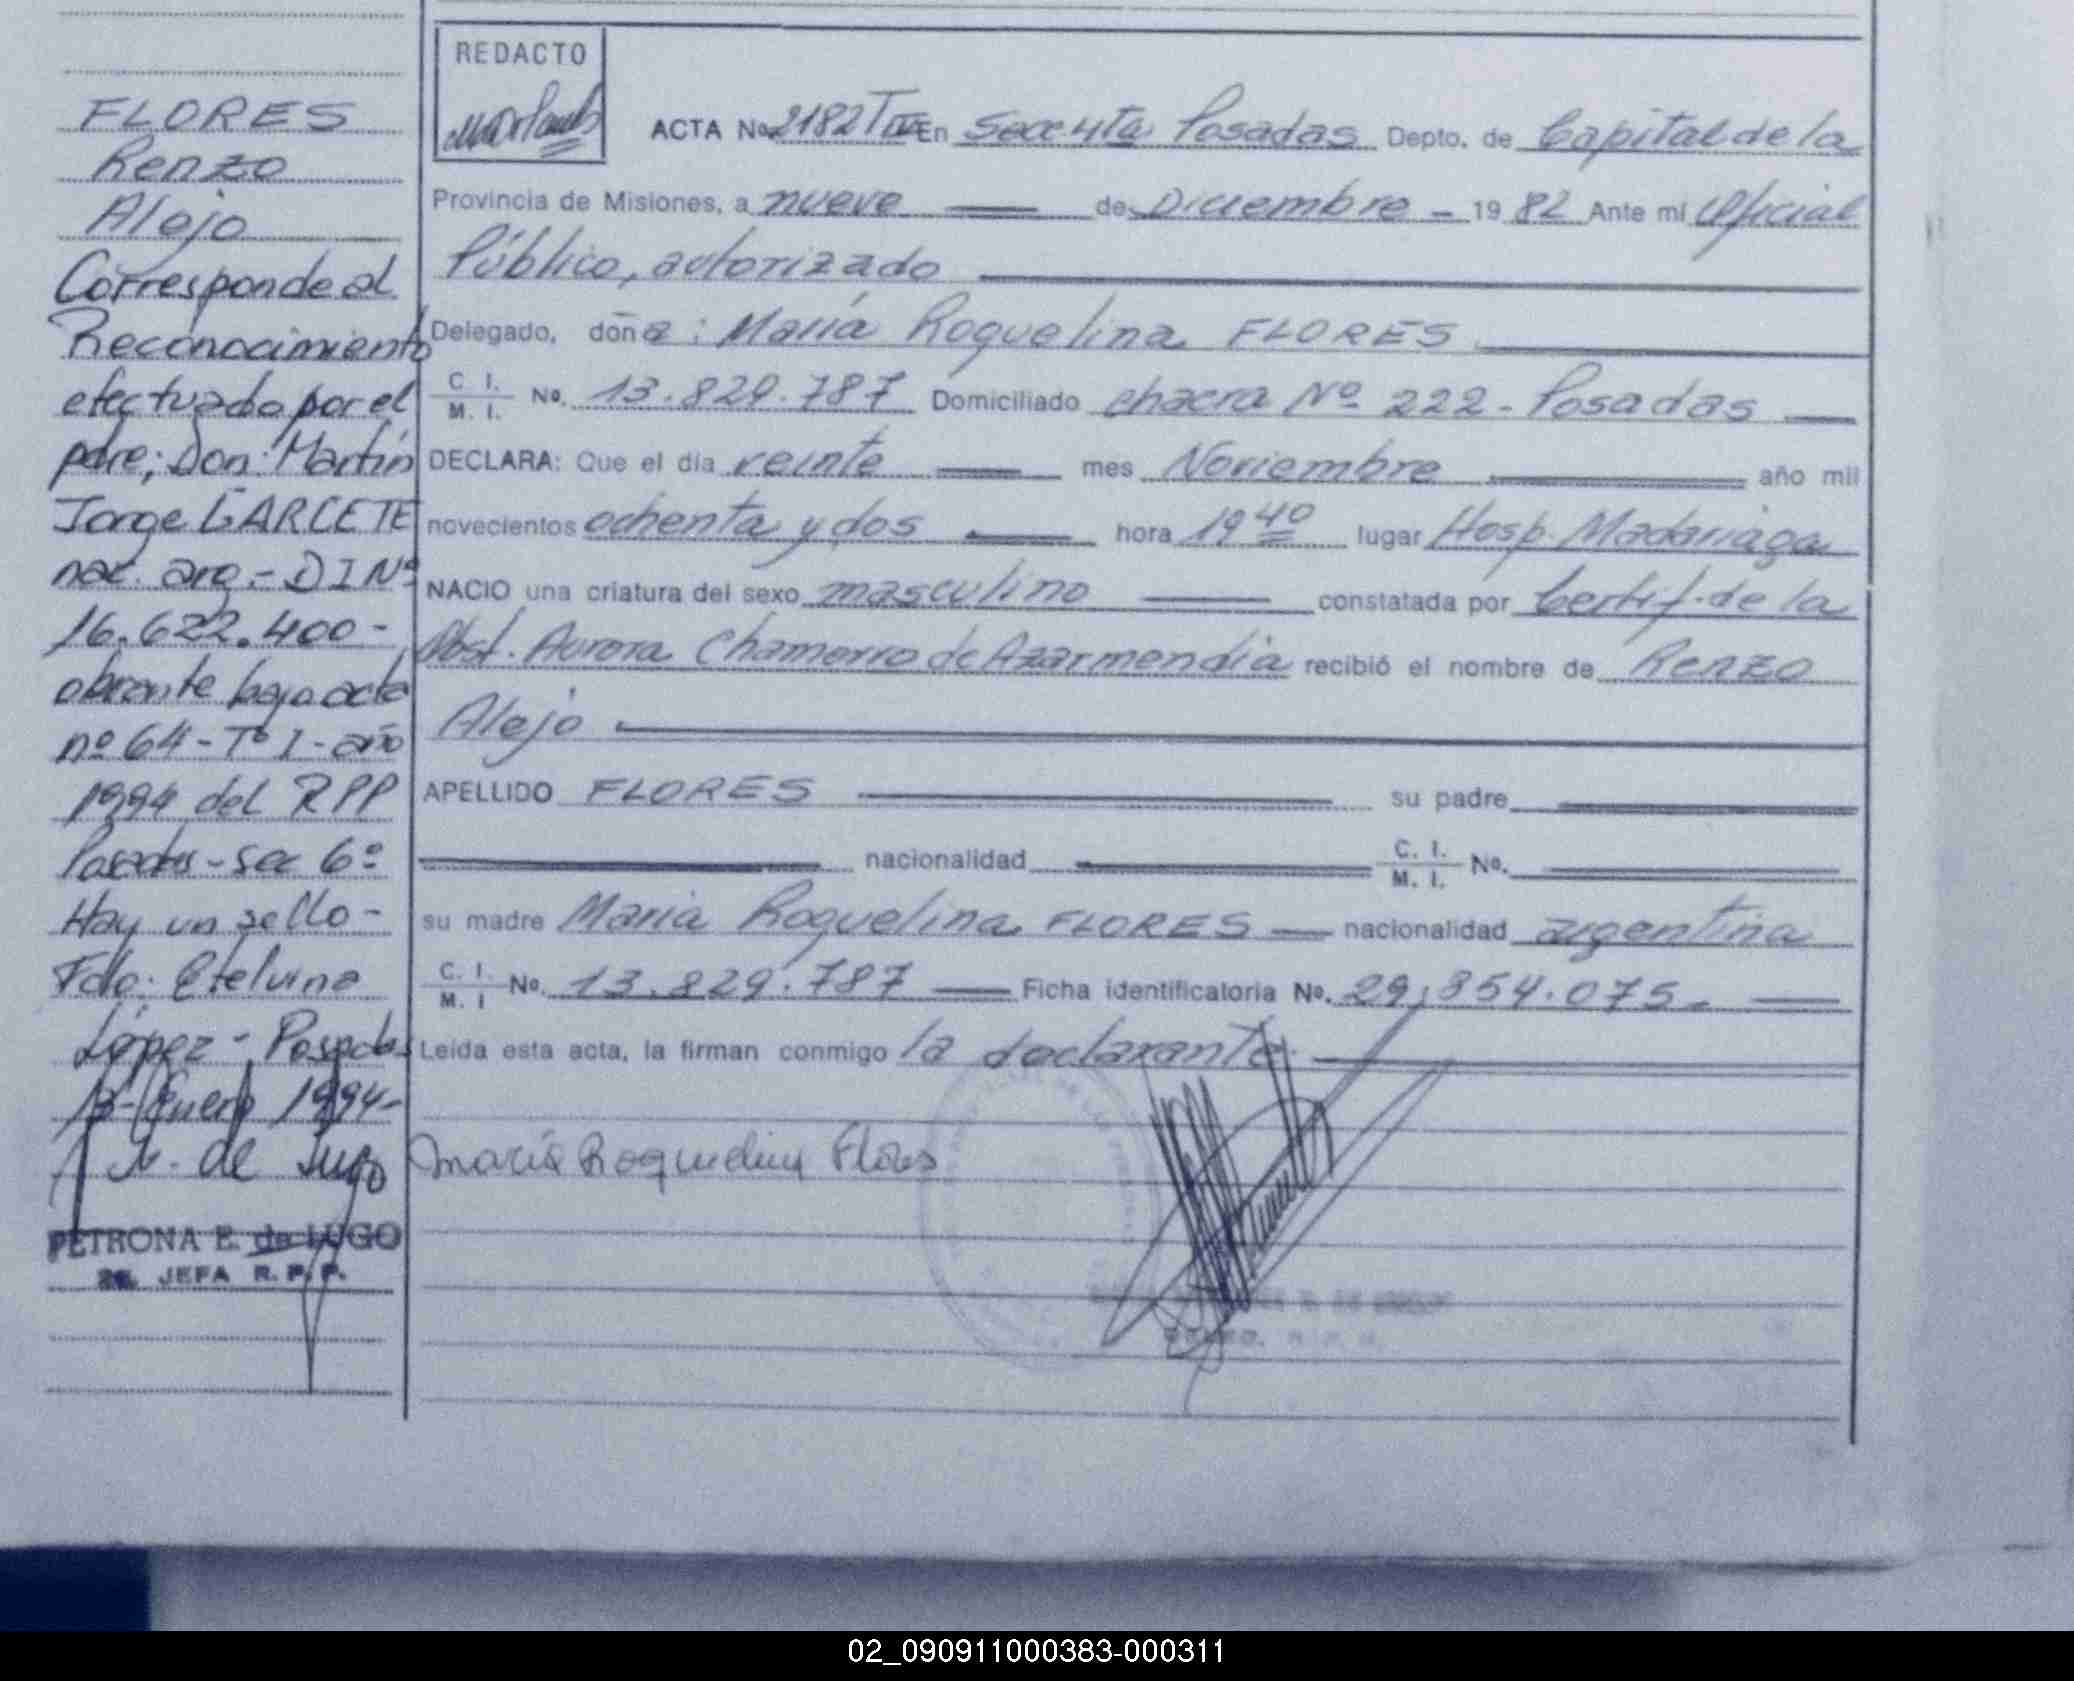 FLORES
Renzo
Alejo
Corresponde al
Reconocimiento
efectuado por el
pdre; Don: Martín
Jorge GARCETE
nac. arg.- DI Nº
16.622.400-
obrante bajo acta
nº 64-Tº I-año
1994 del RPP
Posadas-sec 6º
Hay un sello-
Fdo: Etelvina
López - Posadas
13-Enero 1994-
de Lugo
PETRONA E. de LUGO
JEFA R. P. P.
REDACTO
ACTA No 2182 T IV En Secc 4ta Posadas Depto. de Capital de la
Provincia de Misiones, a nueve de Diciembre - 19 82 Ante mi Oficial
Público, autorizado
Delegado, doña: María Roquelina FLORES
C. I.
M. I. No. 13.829.787 Domiciliado chacra Nº 222 - Posadas
DECLARA: Que el día veinte mes Noviembre año mil
novecientos ochenta y dos hora 19 40 lugar Hosp. Madariaga
NACIO una criatura del sexo masculino constatada por Certif. de la
Obst. Aurora Chamorro de Azarmendia recibió el nombre de Renzo
Alejo
APELLIDO FLORES su padre
nacionalidad C. I. M. I. No.
su madre Maria Roquelina FLORES nacionalidad argentina
C. I.
M. I No. 13.829.787 Ficha identificatoria No. 29.854.075.-
Leída esta acta, la firman conmigo la declarante.
María Roquelina Flores
02_090911000383-000311